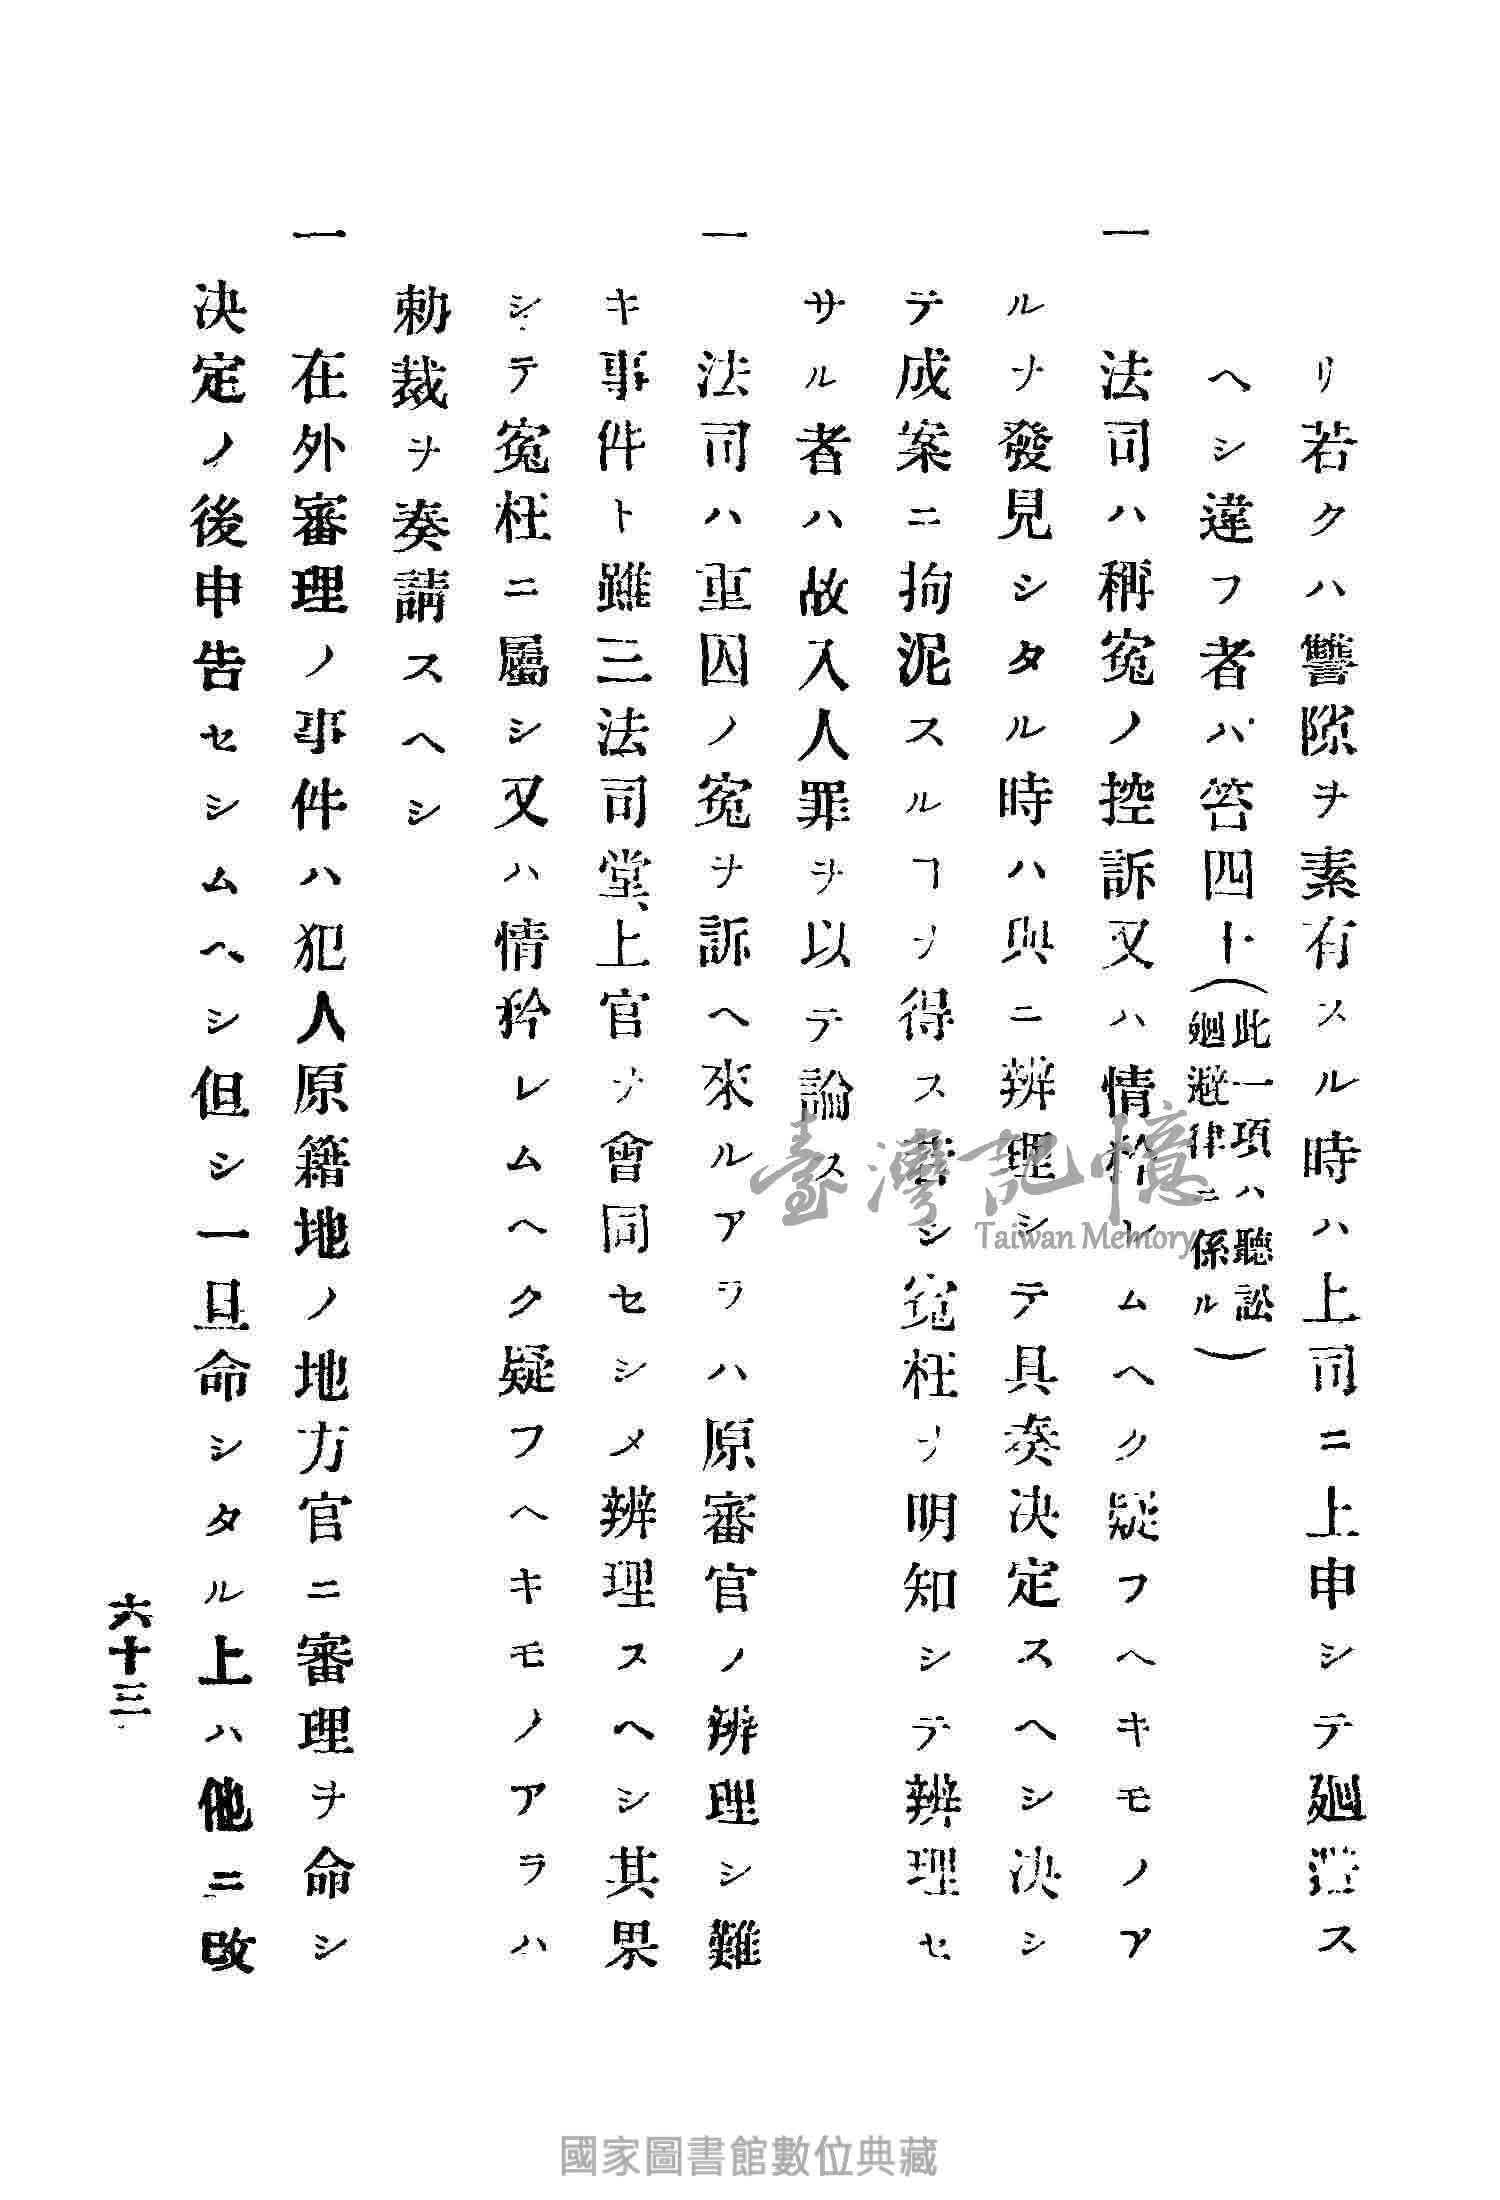 リ若クハ讐隙ヲ素有スル時ハ上司ニ上申シテ廻避ス
ヘシ違フ者ハ笞四十(此一項ハ聽訟廻避律ニ係ル)
一 法司ハ稱寃ノ控訴又ハ情矜レムヘク疑フヘキモノア
ルヲ發見シタル時ハ與ニ辨理シテ具奏决定スヘシ决シ
テ成案ニ拘泥スルヿヲ得ス若シ寃枉ヲ明知シテ辨理セ
サル者ハ故入人罪ヲ以テ論ス
一 法司ハ重囚ノ寃ヲ訴ヘ來ルアラハ原審官ノ辨理シ難
キ事件ト雖三法司堂上官ヲ會同セシメ辨理スヘシ其果
シテ寃枉ニ屬シ又ハ情矜レムヘク疑フヘキモノアラハ
勅裁ヲ奏請スヘシ
一 在外審理ノ事件ハ犯人原籍地ノ地方官ニ審理ヲ命シ
决定ノ後申告セシムヘシ但シ一旦命シタル上ハ他ニ改
六十三
臺灣記憶
Taiwan Memory
國家圖書館數位典藏